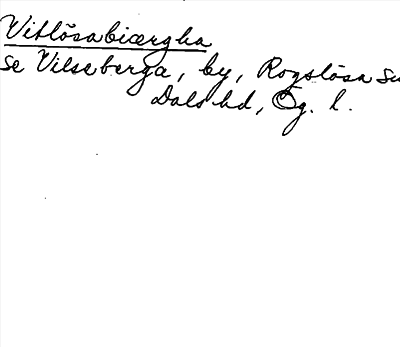 Vitlösabiærgha
se Vilseberga, by, Rogslösa sn
Dals hd, Ög. l.